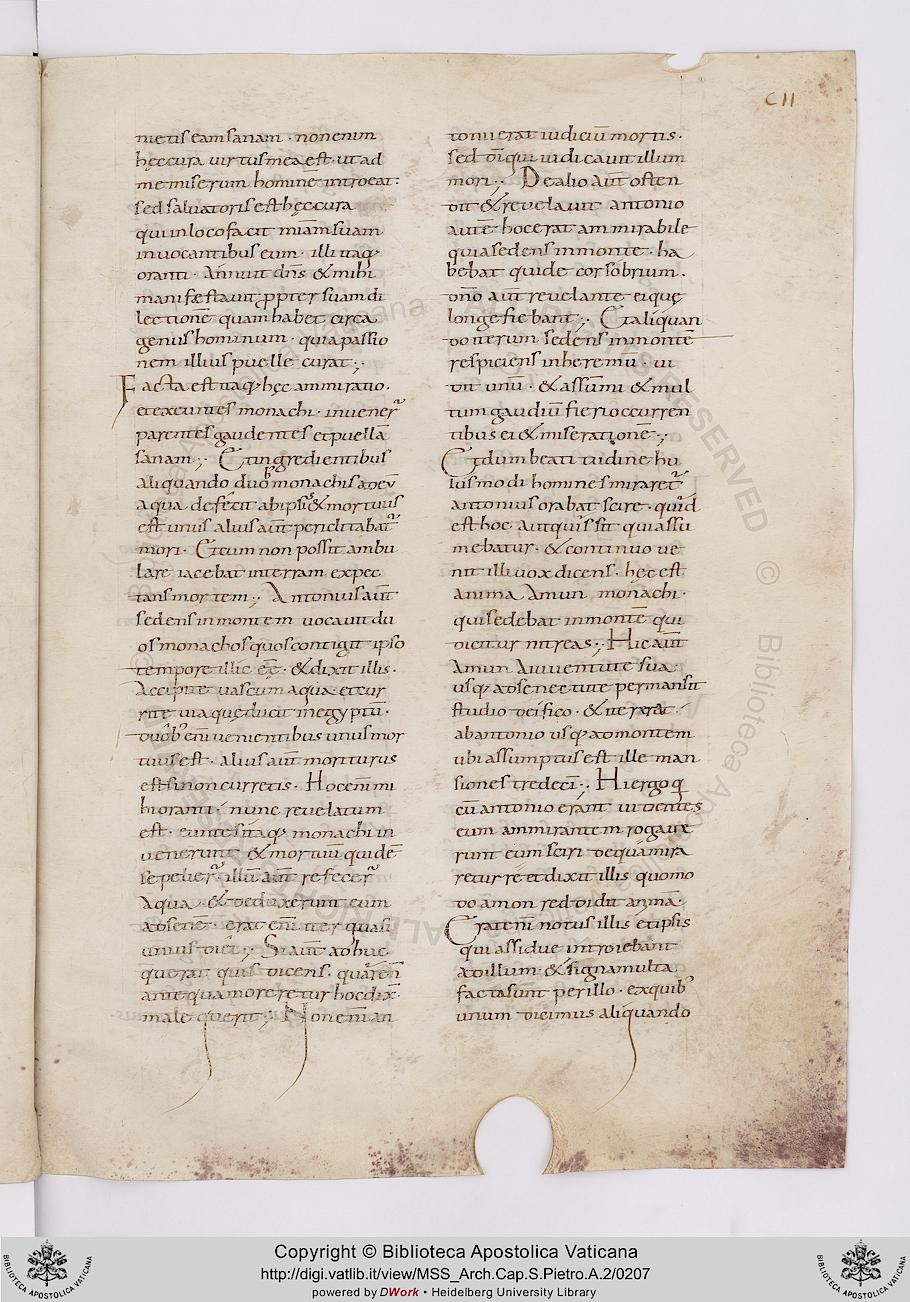 CII
nietis eam sanam · non enim
hęc cura virtus mea est · ut ad
me miserum hominē introeat·
sed salvatoris est hęc cura
qui in loco facit miām suam
invocantibus eum · illi itaq;
oranti · Annuit dn̄s & mihi
manifestavit ꝓpter suam di
lectionē quam habet circa
genus hominum · quia passio
nem illius puelle curat ;·
Facta est itaq; hęc ammiratio ·
et exeuntes monachi · invener̄
parentes gaudentes et puellā
sanam ;· Et ingredientibus
aliquando duob; monachis ad eū
aqua defecit ab ipsis & mortuus
est unus alius aūt periclitabat̄
mori · Et cum non possit ambu
lare iacebat in terram expec
tans mortem ;· Antonius aūt
sedens in montem vocavit du
os monachos quos contigit ipso
tempore illic eē · & dixit illis ·
Accipite vas cum aqua et cur
rite via quę ducit in egyptū ·
duob; enī venientibus unus mor
tuus est · alius aūt moriturus
est si non curretis · Hoc enī mi
hi oranti · nunc revelatum
est · euntes itaq; monachi in
venerunt & mortuū quidē
sepelier̄ · illū aūt refecer̄
Aqua · & deduxerunt eum
ad senē · erat enī iter quasi
unius diei ;· Si aūt adhuc
querat quis dicens · quare n̄
antequa moreretur hoc dix̄ ·
male querit ;· Non enī an
tonii erat iudiciū mortis ·
sed dī qui iudicavit illum
mori ;· De alio aūt osten
dit & revelavit antonio
autē hoc erat ammirabile
quia sedens in monte · ha
bebat quide cor sobrium ·
dn̄o aūt revelante ei quę
longe fiebant ;· Et aliquan
do iterum sedens in monte
respiciens in heremū · vi
dit unū · & assumi & mul
tum gaudiū fieri occurren
tibus ei & miseratione ;·
Et dum beatitudine hu
iusmodi homines miraret̄
antonius orabat scire · quid
est hoc aut quis sit qui assu
mebatur · & continuo ve
nit illi vox dicens · hęc est
anima Amun monachi ·
qui sedebat in monte qui
dicitur nitreas ;· Hic aūt
Amun A iuventute sua
usq; ad senectute permansit
studio deifico · & iter erat
ab antonio usq; ad montem
ubi assumptus est ille man
siones tredecī ;· Hi ergo q
cū antonio erant videntes
eum ammirantem rogave
runt eum sciri de qua mira
retur re et dixit illis quomo
do amon reddidit animā ·
Erat enī notus illis et ipsis
qui assidue introiebant
ad illum · & signa multa
facta sunt per illo · ex quib;
unum dicimus aliquando
Copyright © Biblioteca Apostolica Vaticana
http://digi.vatlib.it/view/MSS_Arch.Cap.S.Pietro.A.2/0207
powered by DWork • Heidelberg University Library
BIBLIOTECA APOSTOLICA VATICANA
BIBLIOTECA APOSTOLICA VATICANA